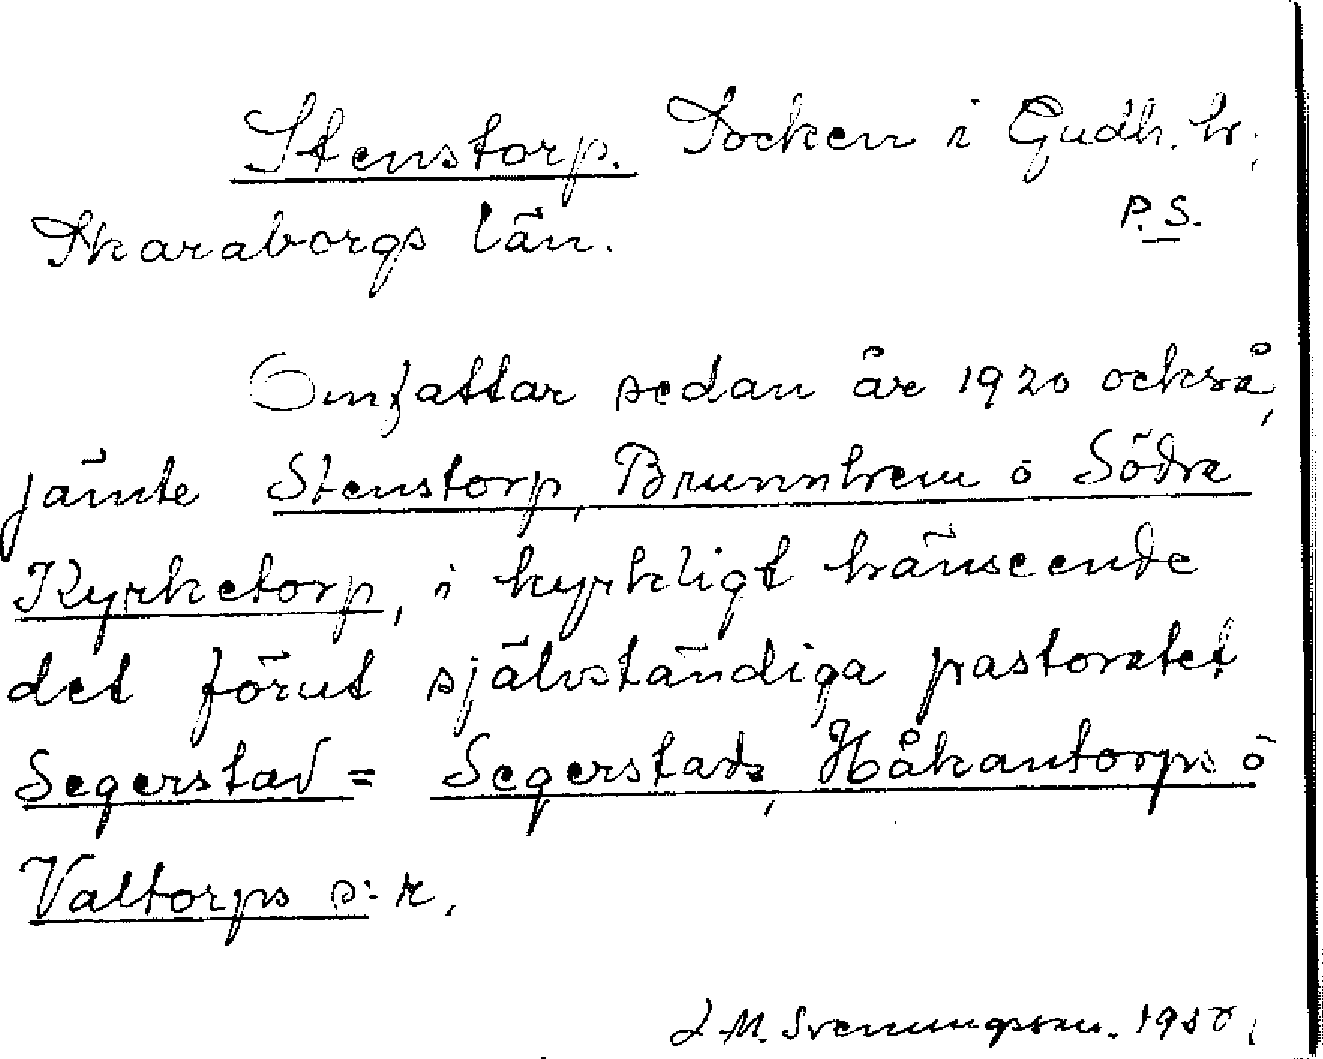 Stenstorp. Socken i Gudh. hr,
P.S.
Skaraborgs län.
Omfattar sedan år 1920 också,
jämte Stenstorp, Brunnhem o Södra
Kyrketorp, i kyrkligt hänseende
det förut självständiga pastoratet
Segerstad = Segerstads, Håkantorps o
Valtorps s:r.
J. M. Svenungsson. 1950.